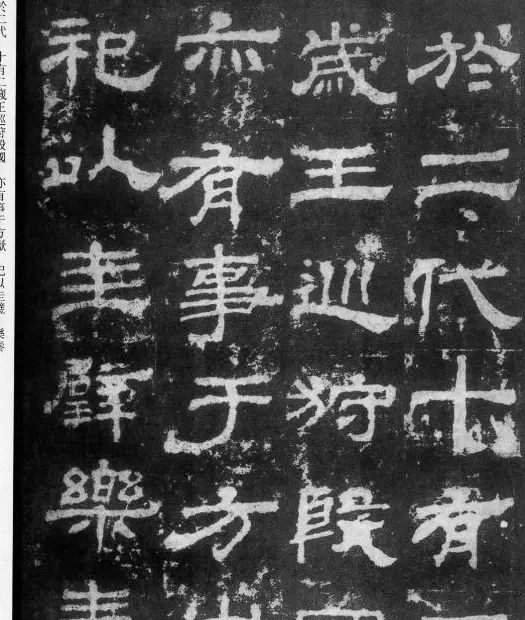 於二代十有
歲王巡狩殷
亦有事于方
祀以圭璧樂
於二代 十有二歲王巡狩殷國 亦有事于方嶽 祀以圭璧 樂奏